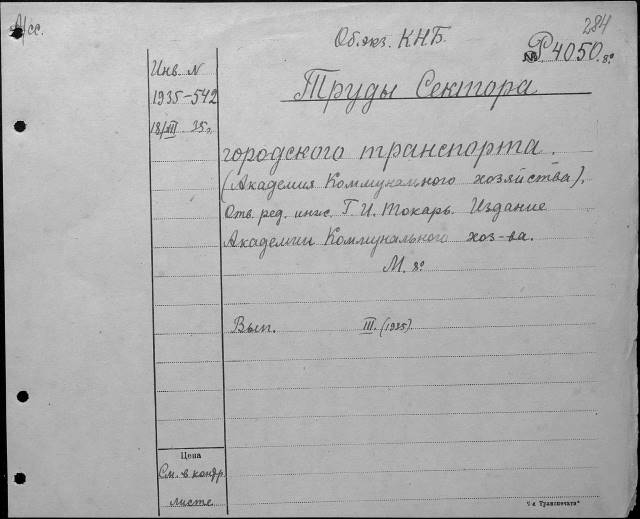 А/сс.
284
Обяз. КНБ.
№ Р 4050. 8°
Инв. N
1935-542
18/III 35г.
Труды Сектора
городского транспорта.
(Академия Коммунального хозяйства).
Отв. ред. инж. Г. И. Токарь. Издание
Академии Коммунального хоз-ва.
М. 8°
Вып. III. (1935)
Цена
См. в контр.
листе
"1-я Транспечать"